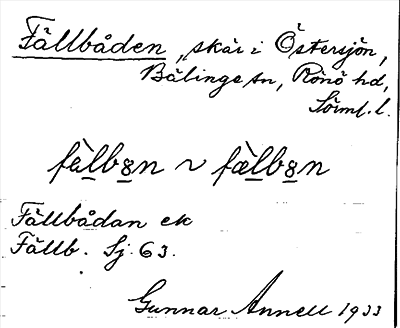 Fällbåden, skär i Östersjön,
Bälinge sn, Rönö hd,
Sörml. l.
fèlb8n ~ fælb8n
Fällbådan ek
Fällb. Sj. 63.
Gunnar Annell 1933